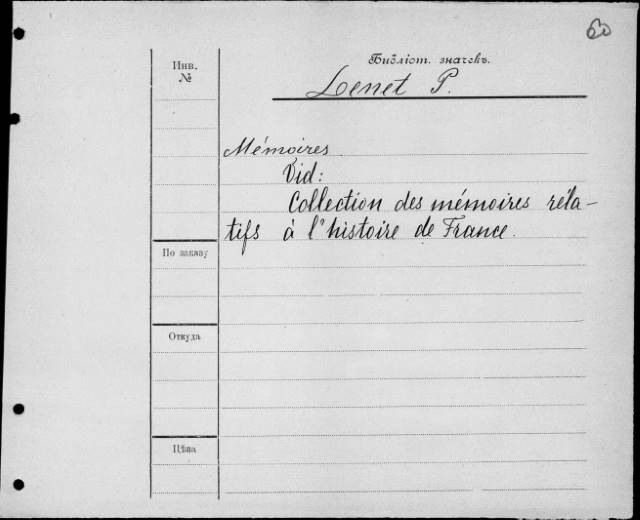 60
Библіот. значекъ.
Lenet P.
Инв.
№
Mémoires
Vid:
Collection des mémoires réla-
tifs à l'histoire de France.
По заказу
Откуда
Цѣна